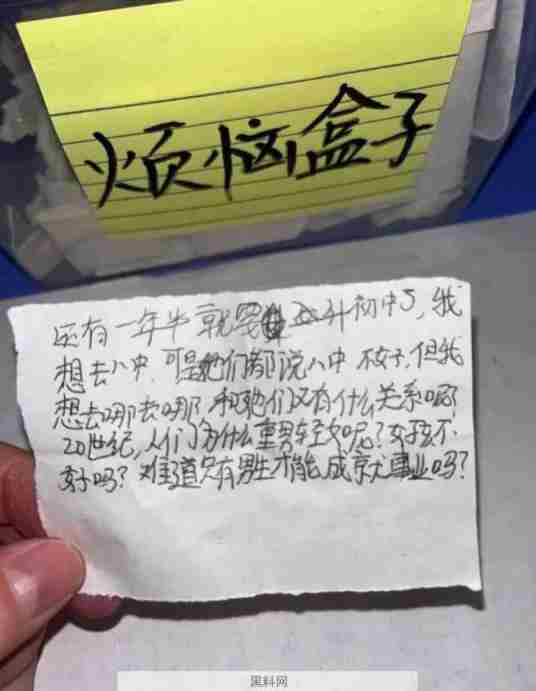 烦恼盒子
还有一年半就要升初中了，我
想去八中，可是她们都说八中不好，但我
想去哪去哪，和她们又有什么关系呢？
20世纪，人们为什么重男轻女呢？女孩不
好吗？难道只有男生才能成就事业吗？
黑料网